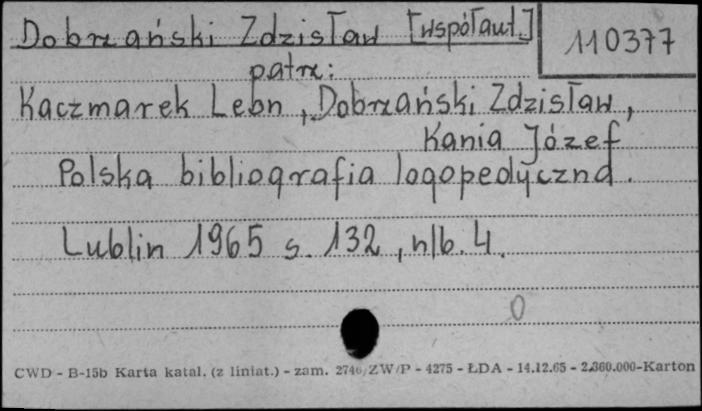 Dobrzański Zdzisław [współaut.]
110377
patrz:
Kaczmarek Leon, Dobrzański Zdzisław,
Kania Józef
Polska bibliografia logopedyczna.
Lublin 1965 s. 132, nlb. 4.
0
CWD - B-15b Karta katal. (z liniat.) - zam. 2746/ZW/P - 4275 - ŁDA - 14.12.65 - 2.360.000-Karton